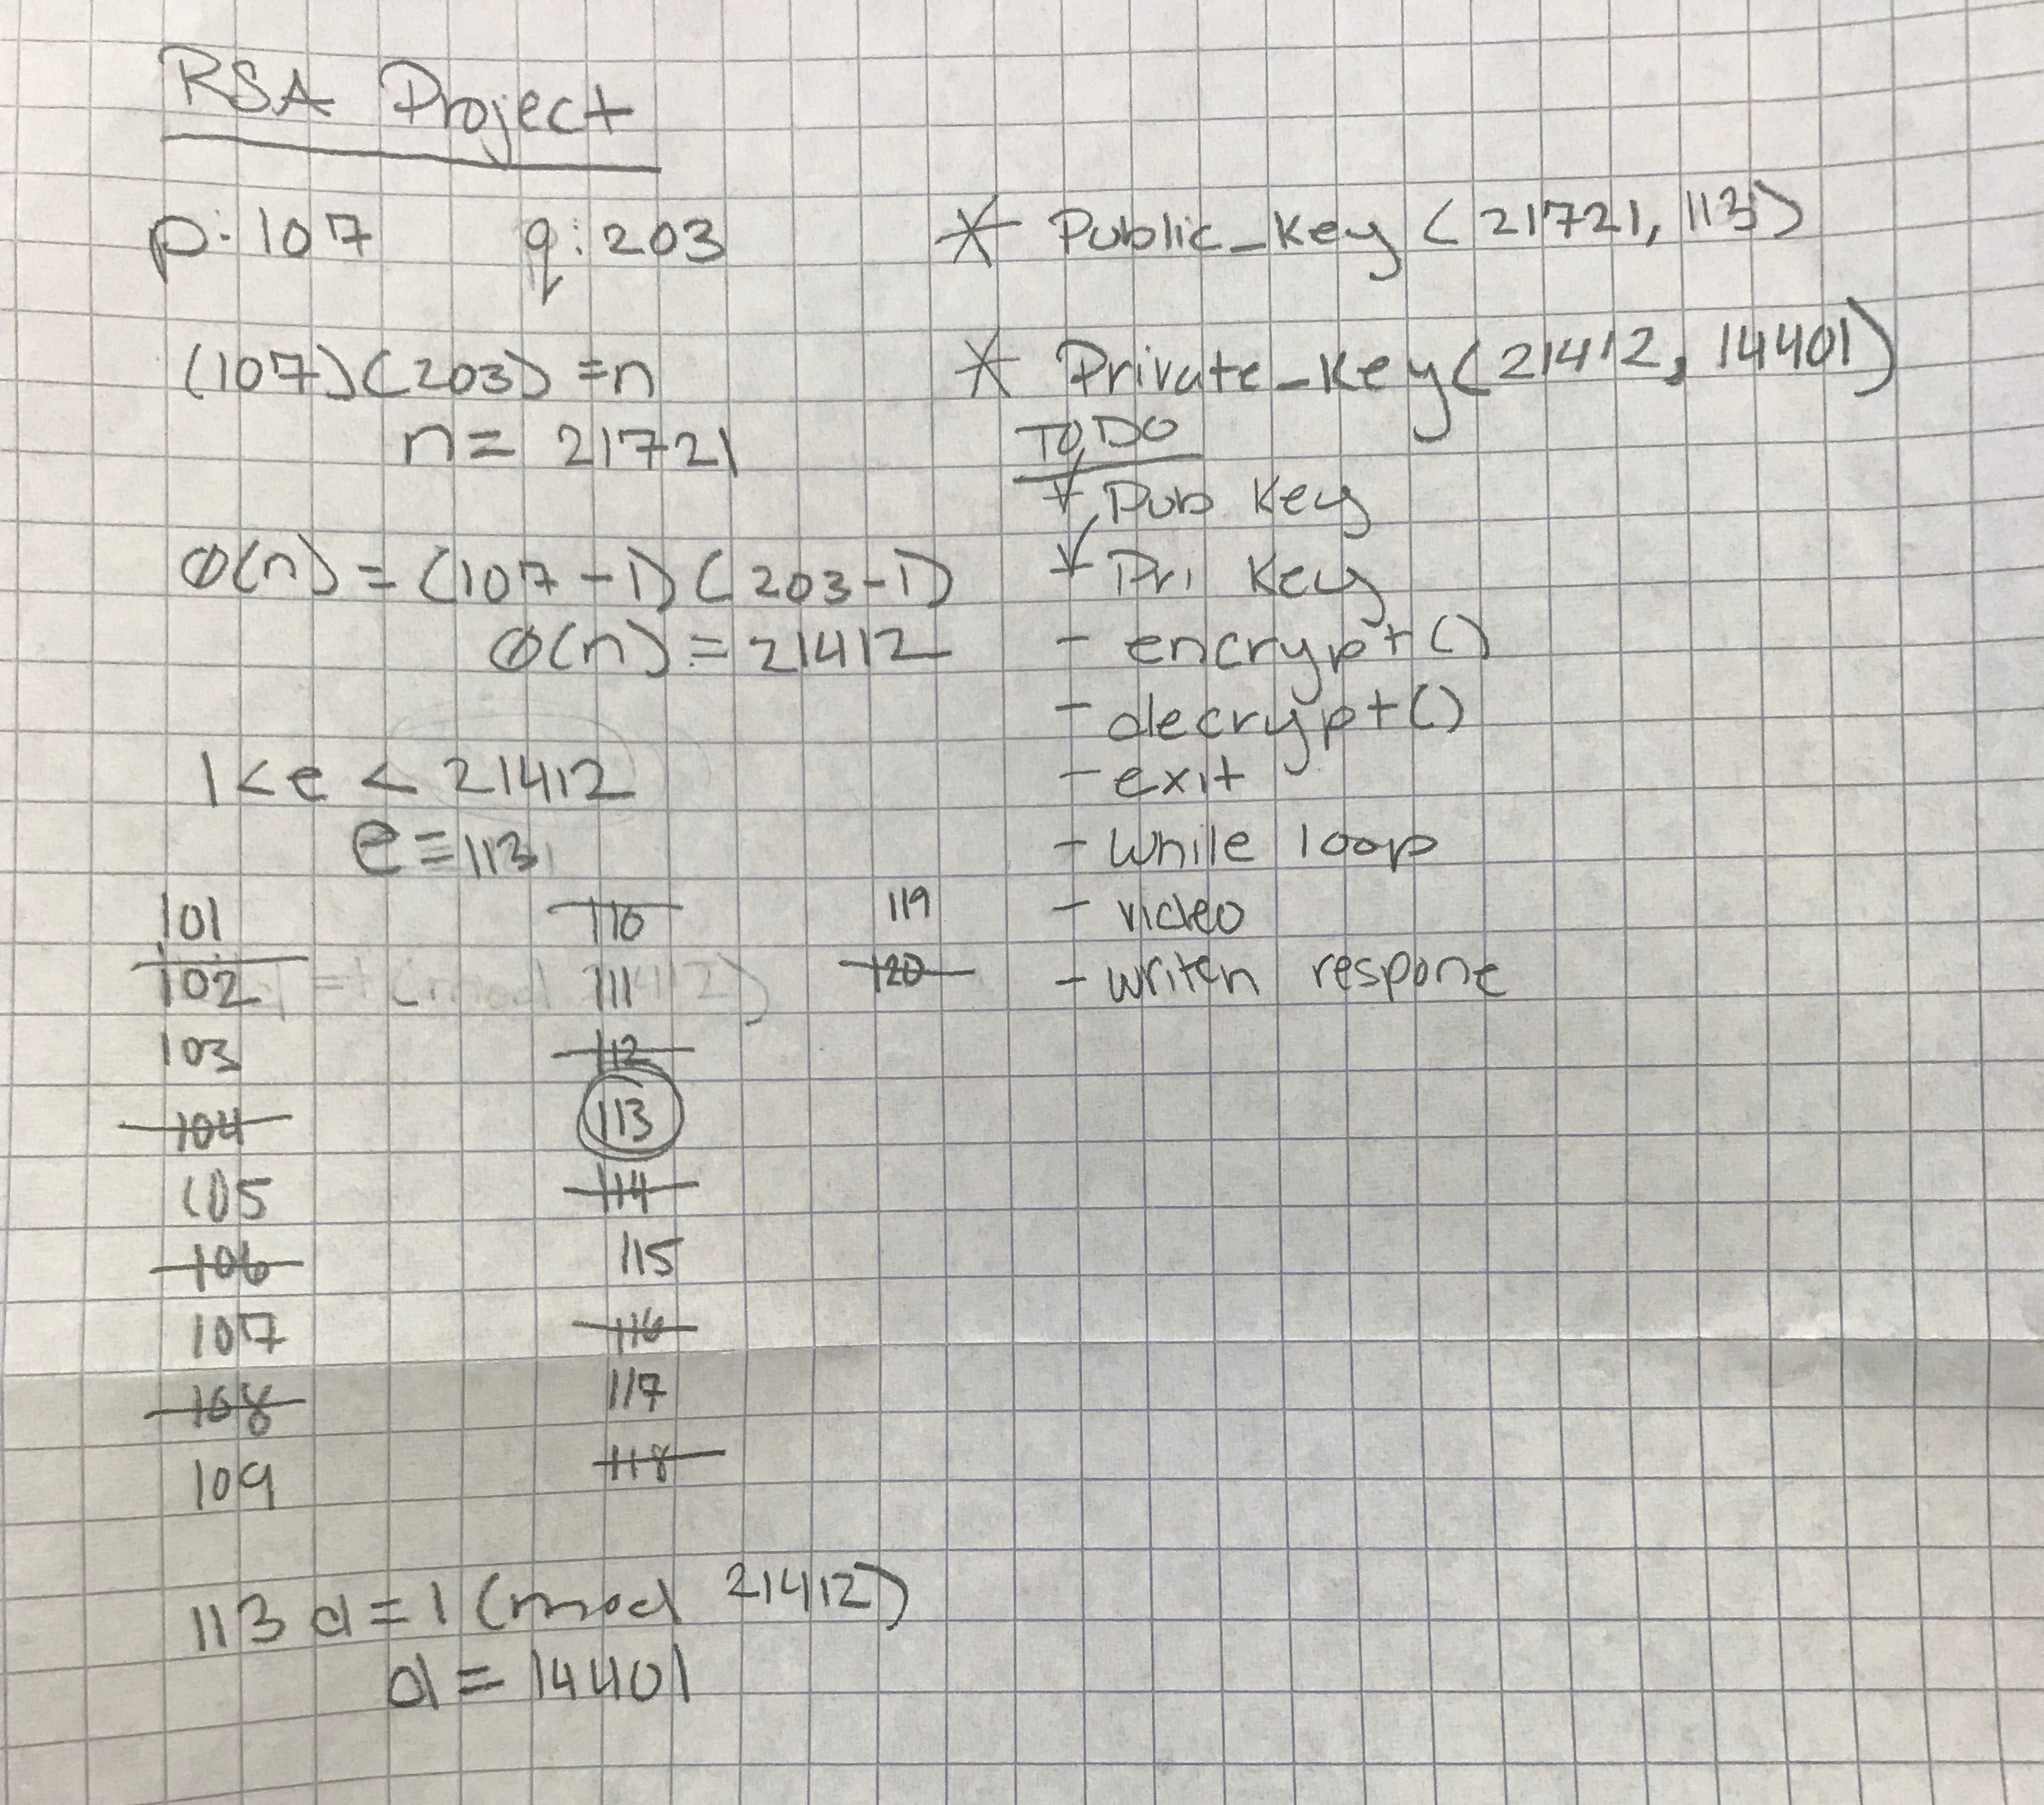 RSA Project
p: 107 q: 203
(107)(203) = n
n = 21721
Ø(n) = (107 - 1)(203 - 1)
Ø(n) = 21412
1 < e < 21412
e = 113
101
102
103
104
105
106
107
108
109
110
111
112
113
114
115
116
117
118
119
120
113 d = 1 (mod 21412)
d = 14401
* Public_Key (21721, 113)
* Private_Key (21412, 14401)
TO DO
✓ Pub Key
✓ Pri Key
- encrypt()
- decrypt()
- exit
- While loop
- video
- writen respone